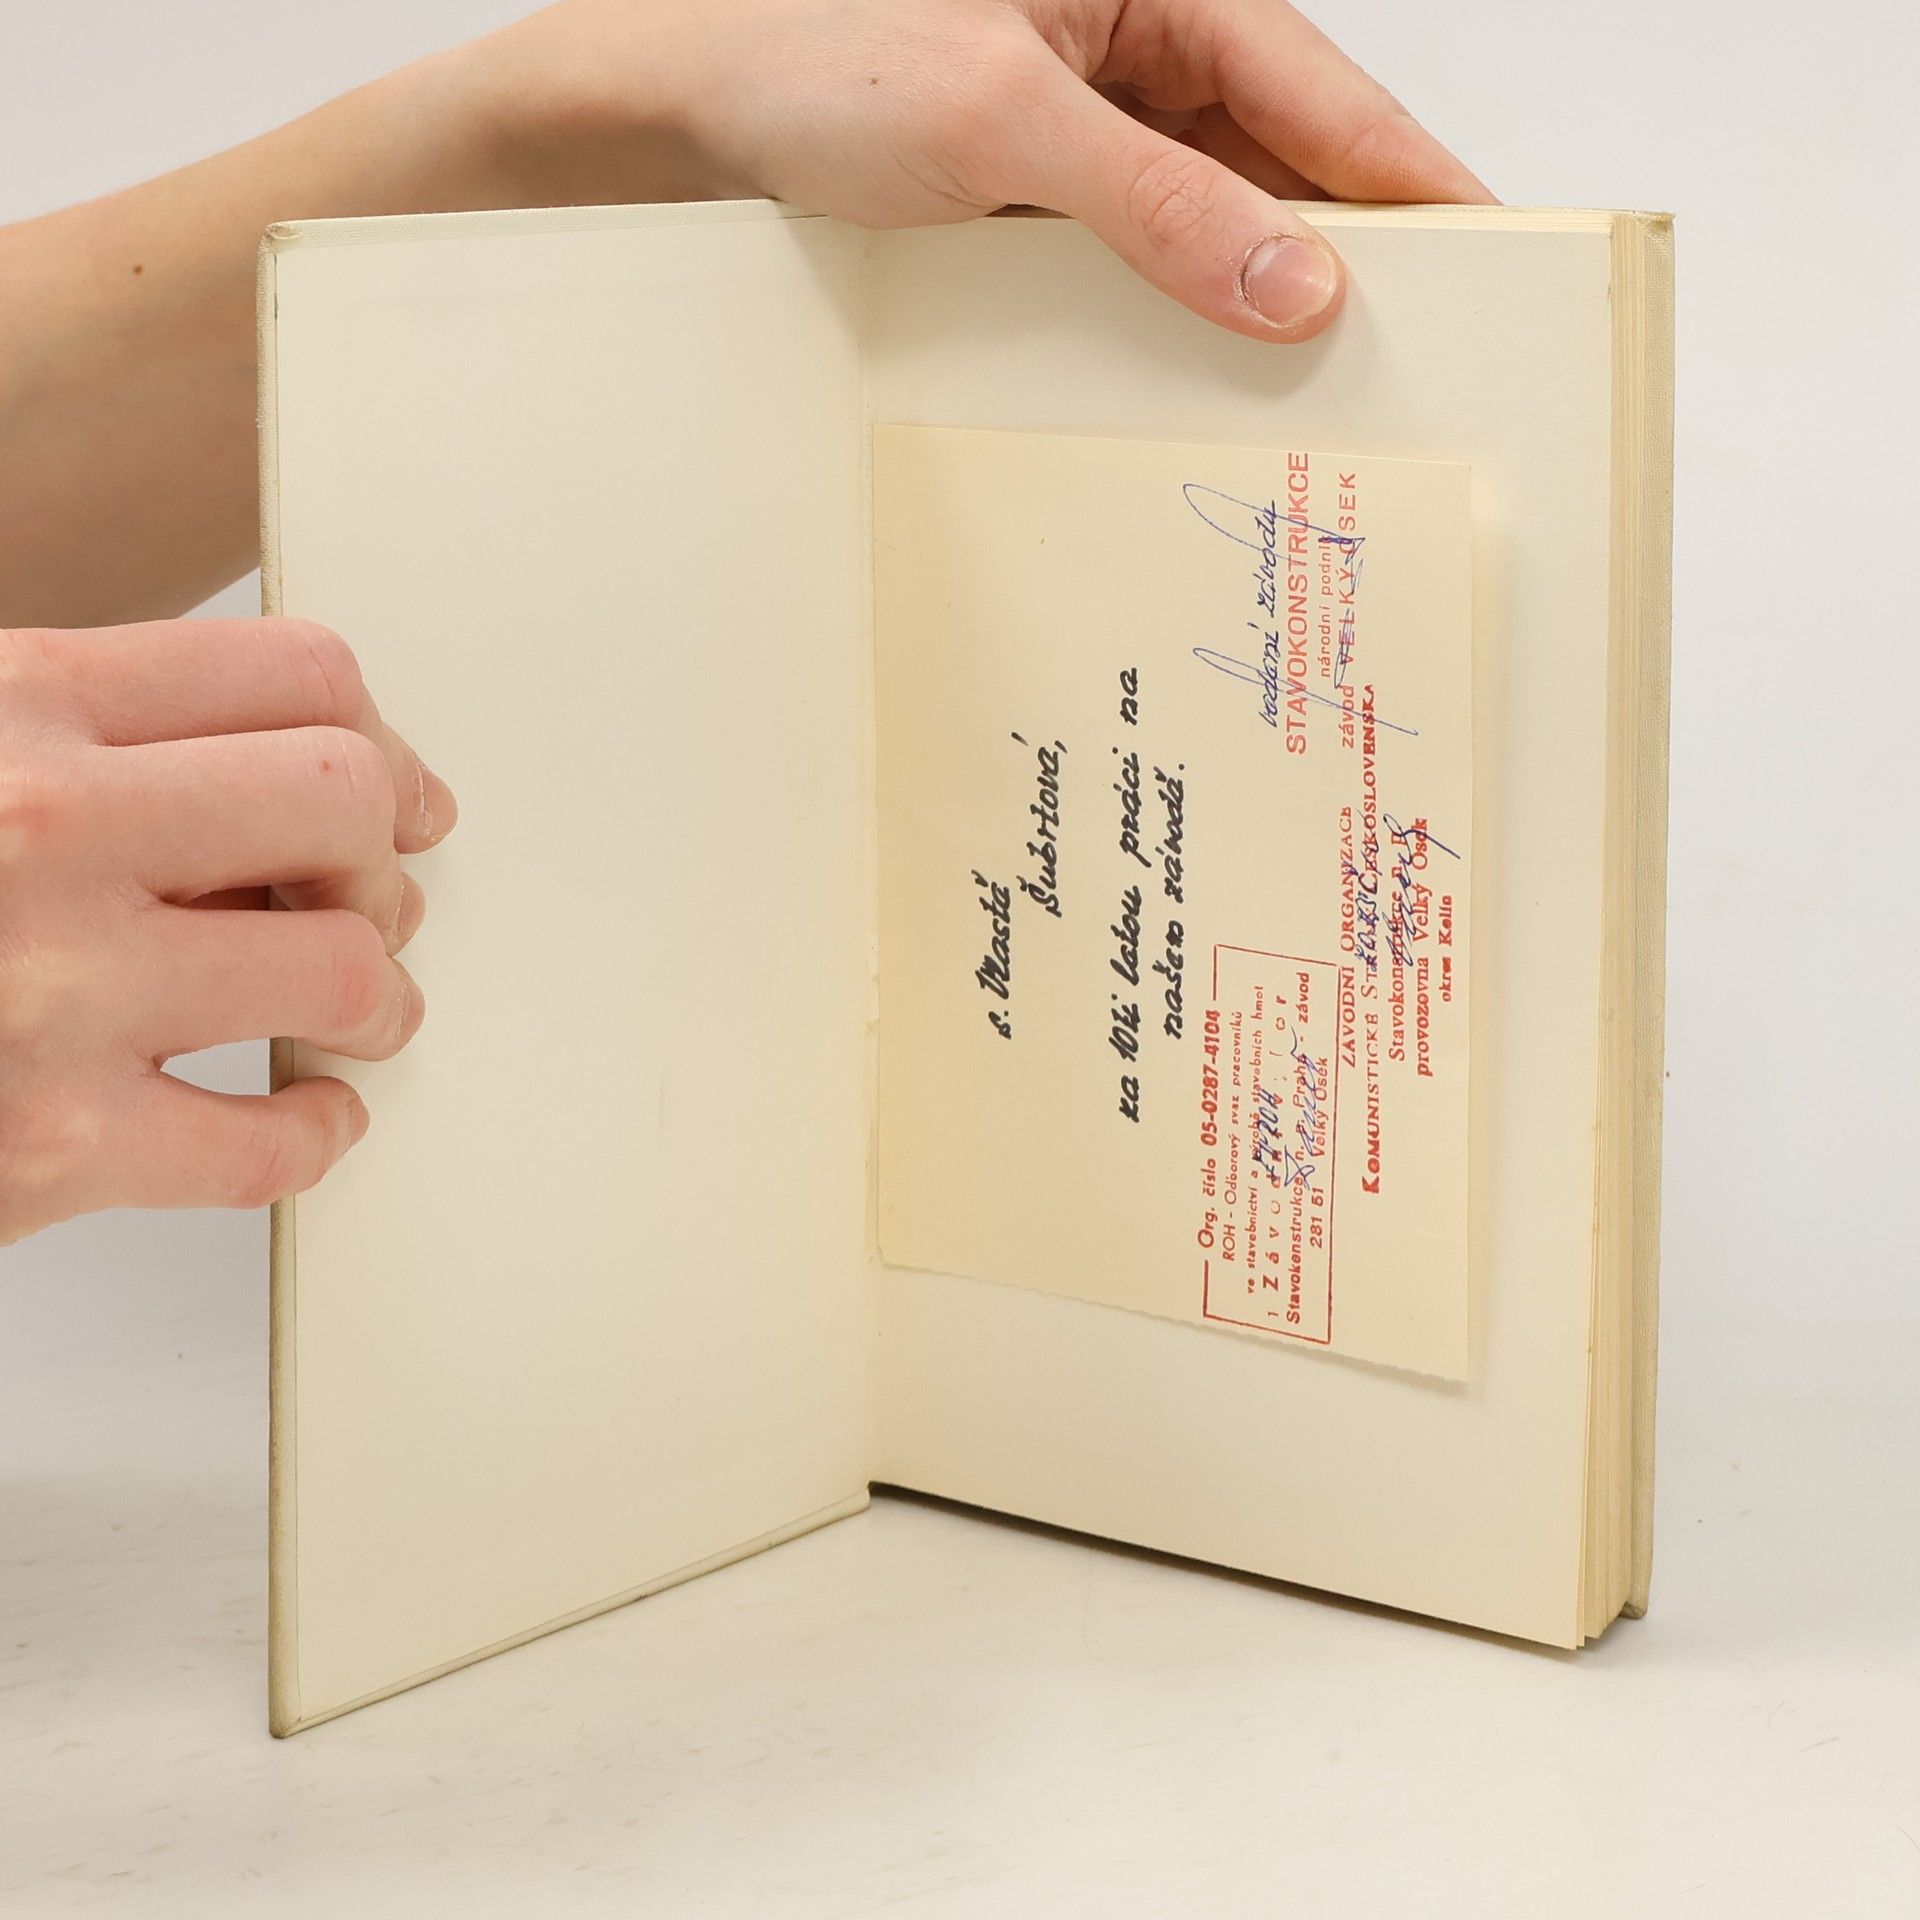 s. Vlastě
Šubrtová,
za 10ti letou práci na
našem závodě.
vedení závodu
STAVOKONSTRUKCE
národní podnik
závod VELKÝ OSEK
Org. číslo 05-0287-4104
ROH - Odborový svaz pracovníků
ve stavebnictví a výrobě stavebních hmot
Stavokonstrukce, n. p. Praha - závod
281 51 Velký Osek
ZÁVODNÍ ORGANIZACE
KOMUNISTICKÉ STRANY ČESKOSLOVENSKA
Stavokonstrukce n. p.
provozovna Velký Osek
okres Kolín